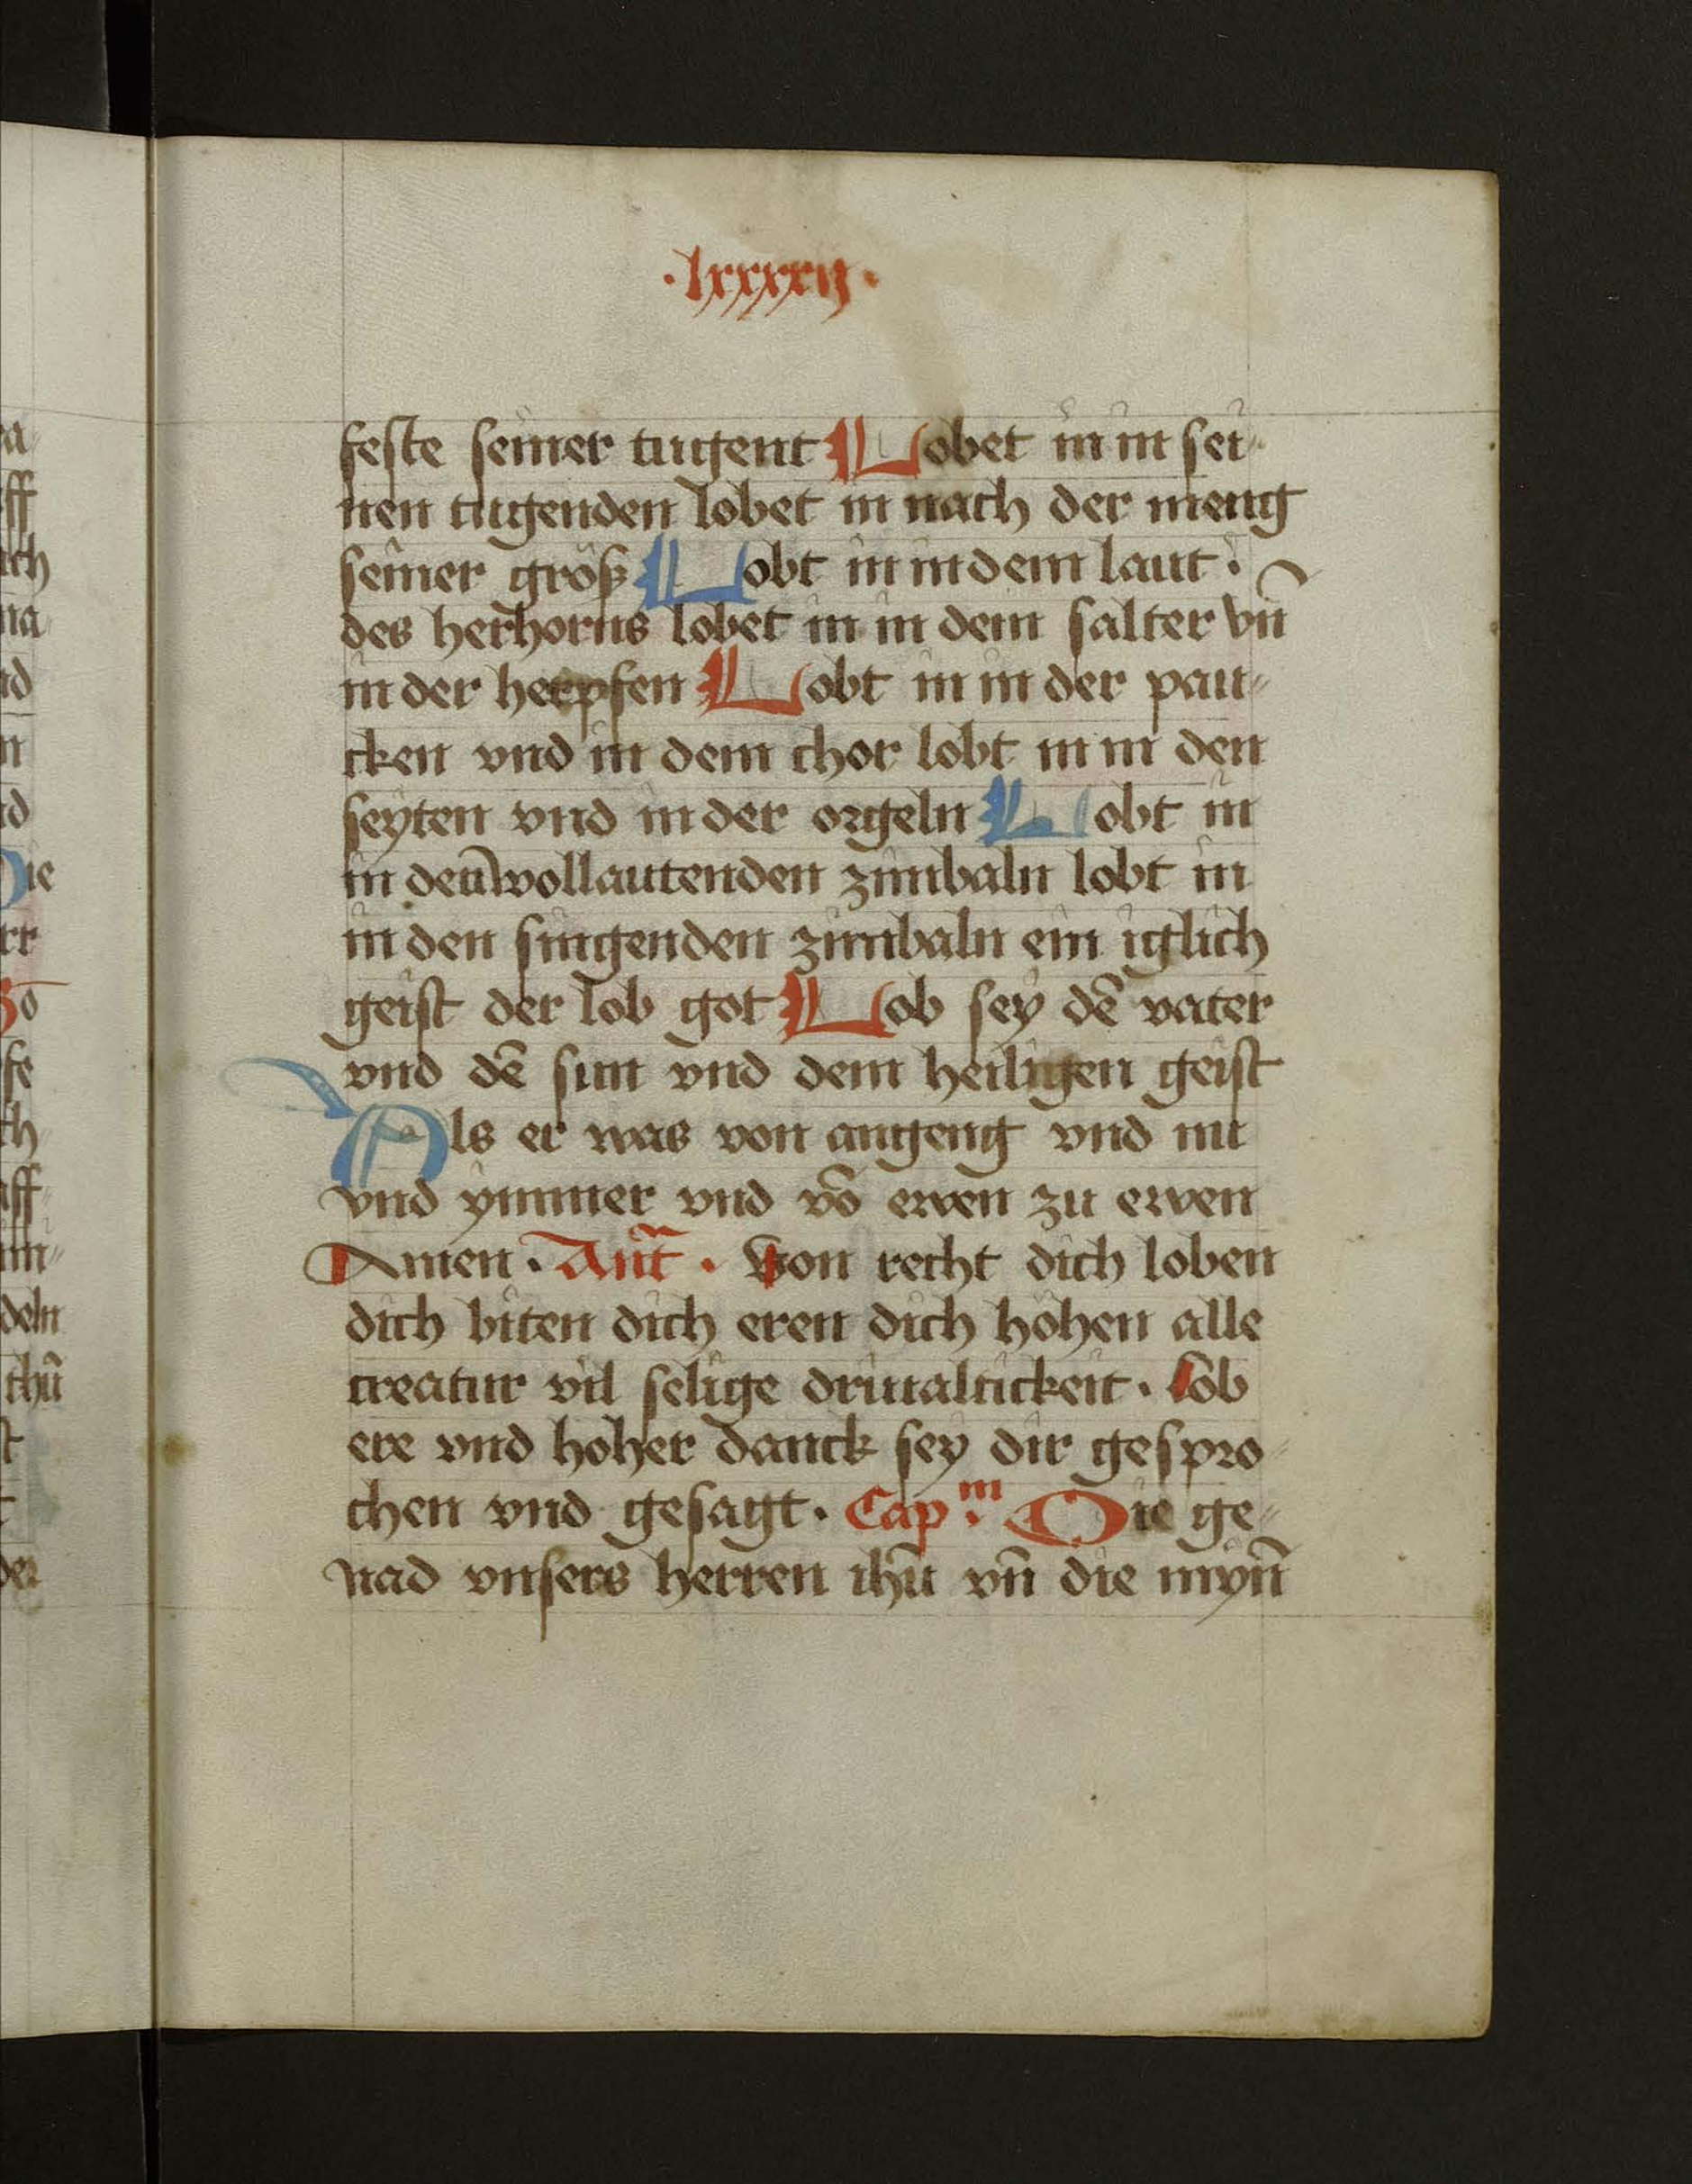 ·lxxxxij·
feste seiner tugent Lobet in in sei-
nen tugenden lobet in nach der meng
seiner größ Lobt in in dem laut ·
des herhorns lobet in in dem salter vn̄
in der herpfen Lobt in in der pau-
cken vnd in dem chor lobt in in den
seyten vnd in der orgeln Lobt in
in den wollautenden zimbaln lobt in
in den singenden zimbaln ein iglich
geist der lob got Lob sey dē vater
vnd dē sun vnd dem heiligen geist
Als er was von angeng vnd nu
vnd ymmer vnd vō ewen zu ewen
Amen · Ant̄ · Von recht dich loben
dich biten dich eren dich höhen alle
creatur vil selige driualtickeit · Lob
ere vnd hoher danck sey dir gespro-
chen vnd gesagt · Capᵐ· Die ge-
nad vnsers herren ihū vn̄ die myn̄